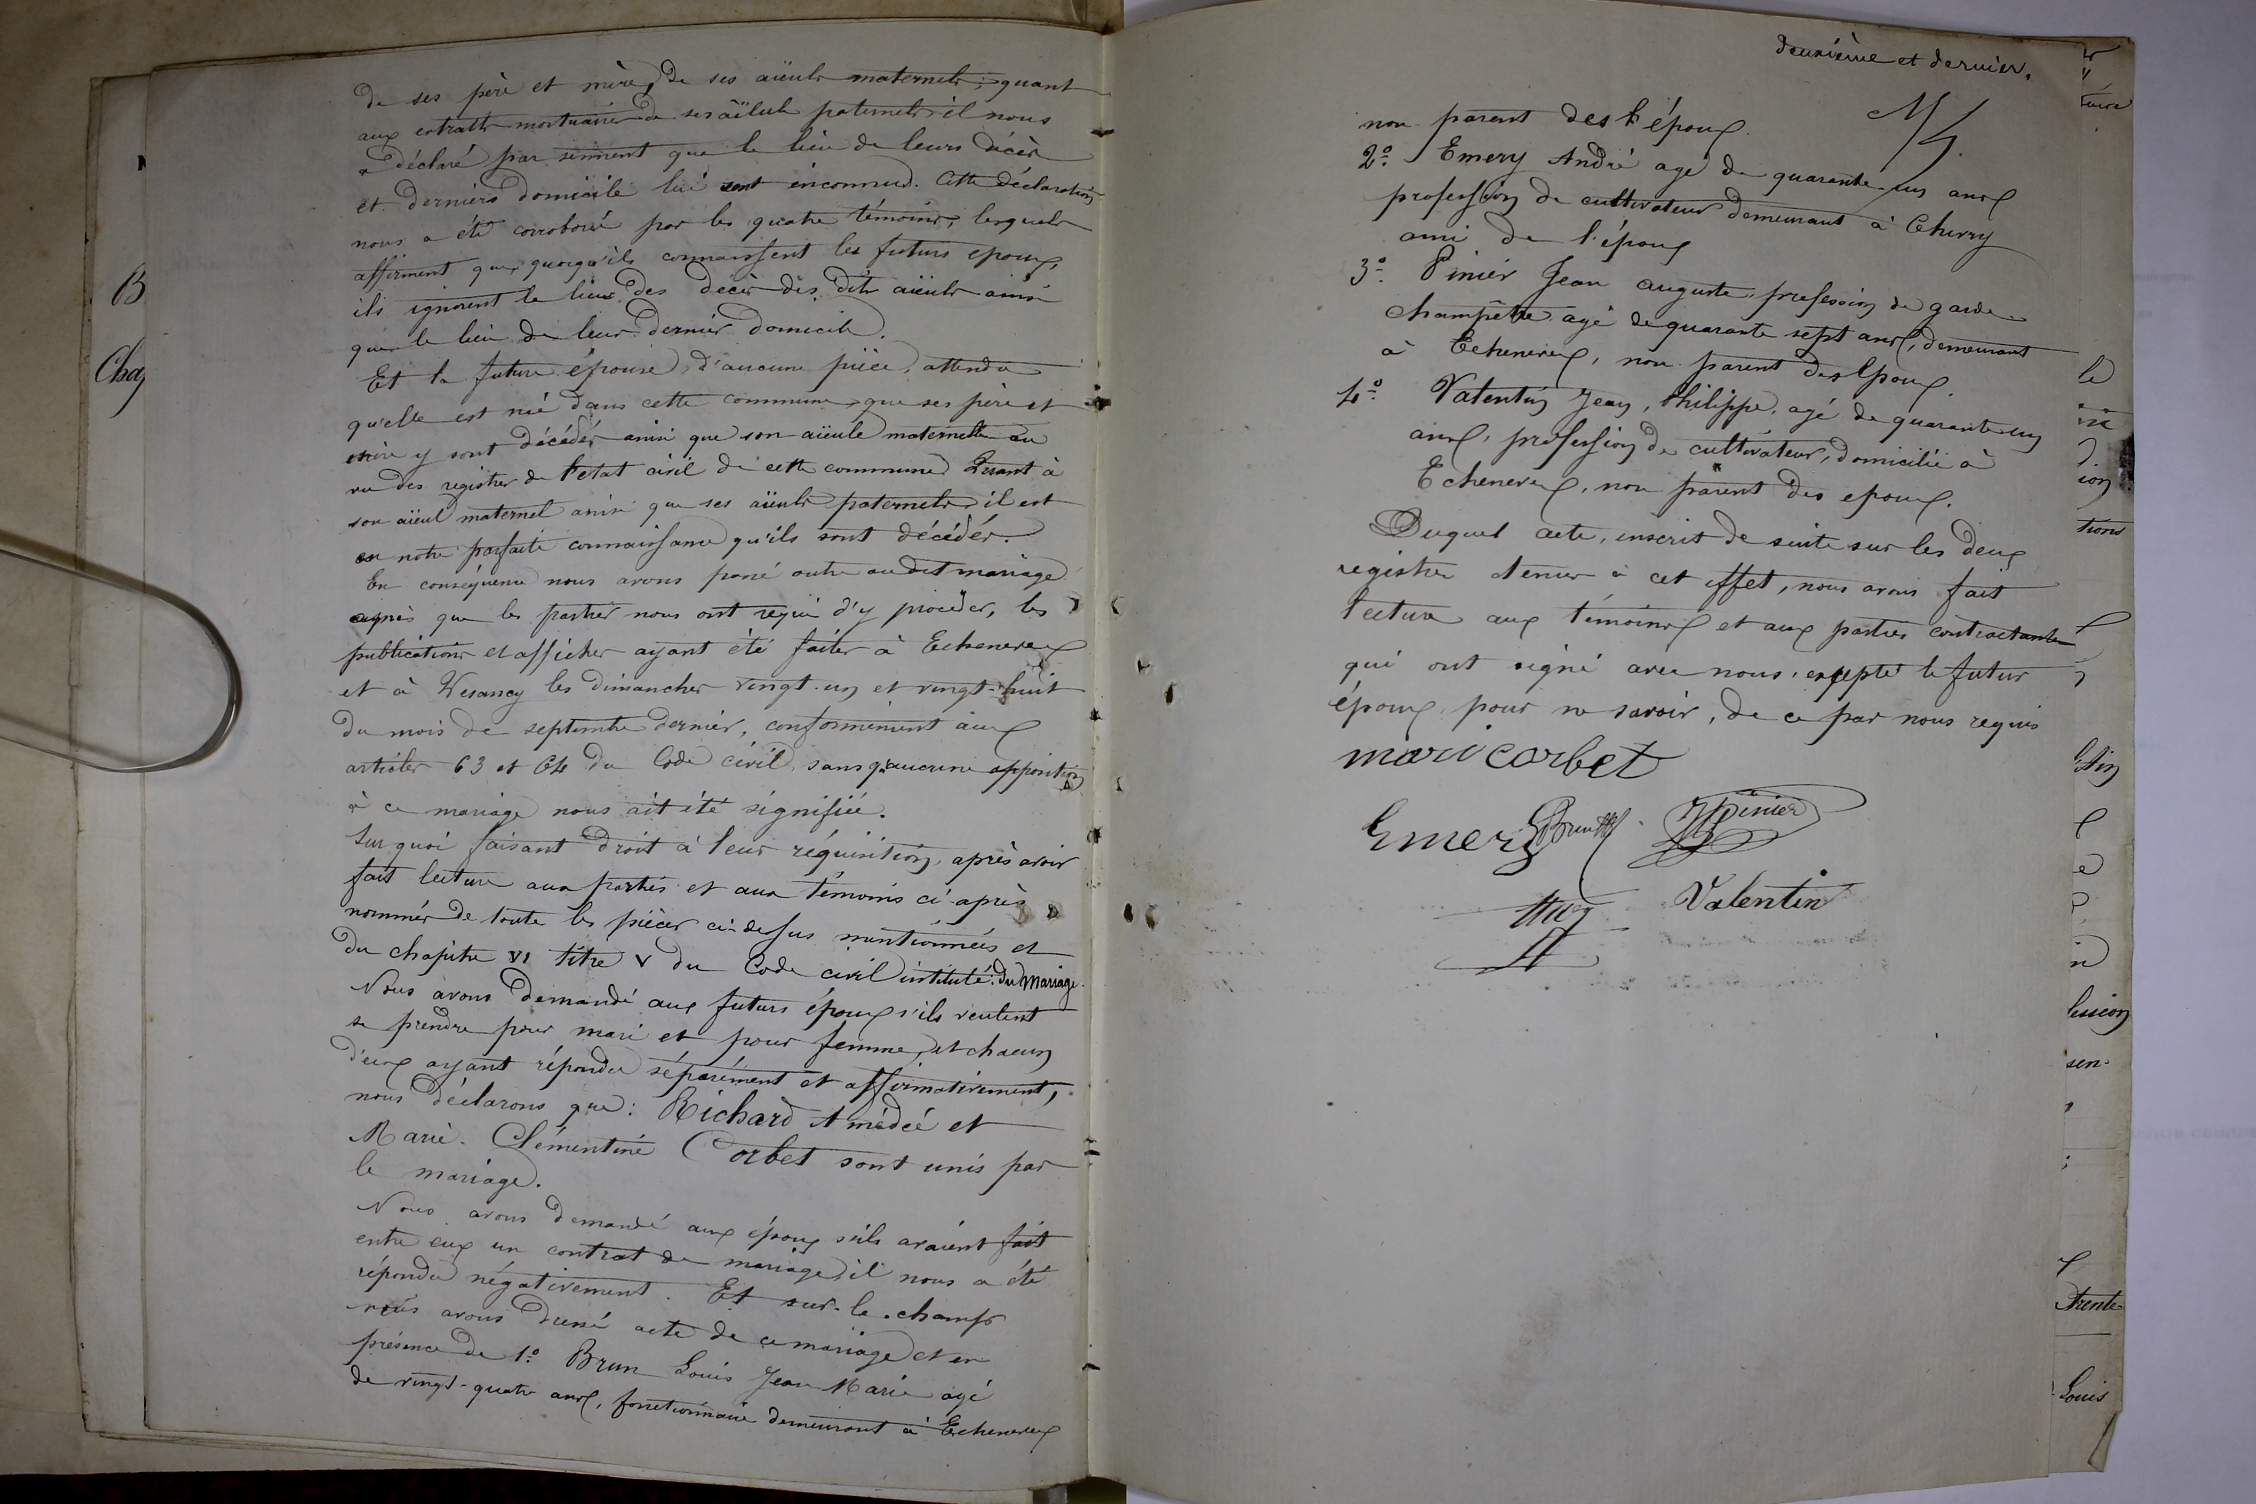 de ses père et mère, de ses aïeuls maternels; quant
aux extraits mortuaires de ses aïeuls paternels il nous
a déclaré par serment que le lieu de leurs décès
et derniers domicile lui sont inconnus. Cette déclaration
nous a été corroboré par les quatre témoins, lesquels
affirment que, quoiqu'ils connaissent les futurs epoux,
ils ignorent le lieu des décès des dits aïeuls ainsi
que le lieu de leur dernier domicile.
Et la future épouse, d'aucune pièce, attendu
qu'elle est née dans cette commune, que ses père et
mère y sont décédés ainsi que son aïeule maternelle au
vu des registres de l'etat civil de cette commune. Quant à
son aïeul maternel ainsi que ses aïeuls paternels, il est
en notre parfaite connaissance qu'ils sont décédés.
En conséquence nous avons passé outre au dit mariage
après que les parties nous ont requis d'y procéder, les
publications et affiches ayant été faites à Echenevex
et à Vesancy les dimanches vingt-un et vingt-huit
du mois de septembre dernier, conformément aux
articles 63 et 64 du Code civil, sans qu'aucune opposition
à ce mariage nous ait été signifiée.
Sur quoi faisant droit à leur réquisition, après avoir
fait lecture aux parties et aux témoins ci-après
nommés de toute les pièces ci-dessus mentionnées et
du chapitre VI titre V du Code civil intitulé: du Mariage.
Nous avons demandé aux futurs époux s'ils veulent
se prendre pour mari et pour femme, et chacun
d'eux ayant répondu séparément et affirmativement,
nous déclarons que: Richard Amédée et
Marie-Clémentine Corbet sont unis par
le mariage.
Nous avons demandé aux époux s'ils avaient fait
entre eux un contrat de mariage, il nous a été
répondu négativement. Et sur-le-champs
nous avons dressé acte de ce mariage et en
présence de 1º Brun Louis Jean Marie agé
de vingt-quatre ans, fonctionnaire demeurant à Echenevex
deuxième et dernier.
non parent des époux
2º Emery André agé de quarante-un ans
profession de cultivateur demeurant à Chevry
ami de l'époux
3º Pinier Jean auguste, profession de garde
champêtre agé de quarante sept ans, demeurant
à Echenevex, non parent des epoux
4º Valentin Jean, Philippe, agé de quarante-un
ans, profession de cultivateur, domicilié à
Echenevex, non parent des epoux.
Duquel acte, inscrit de suite sur les deux
registres tenus à cet effet, nous avons fait
lecture aux témoins et aux parties contractantes
qui ont signé avec nous, excepté le futur
époux, pour ne savoir, de ce par nous requis
mari corbet
Emery Brun Pinier
Valentin
B
le
ion
tions
sen-
trente
Louis